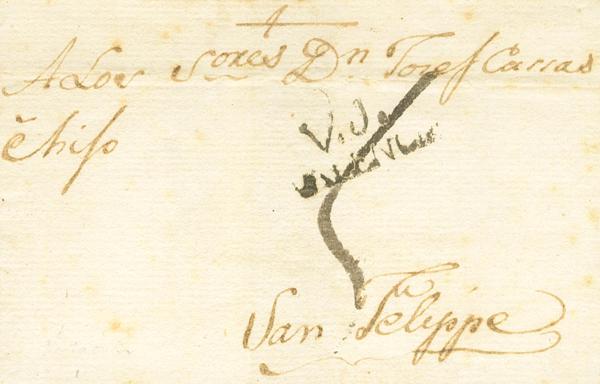 A Los Sores Dn Josef Carras
ê hijo
V. de
San Felippe